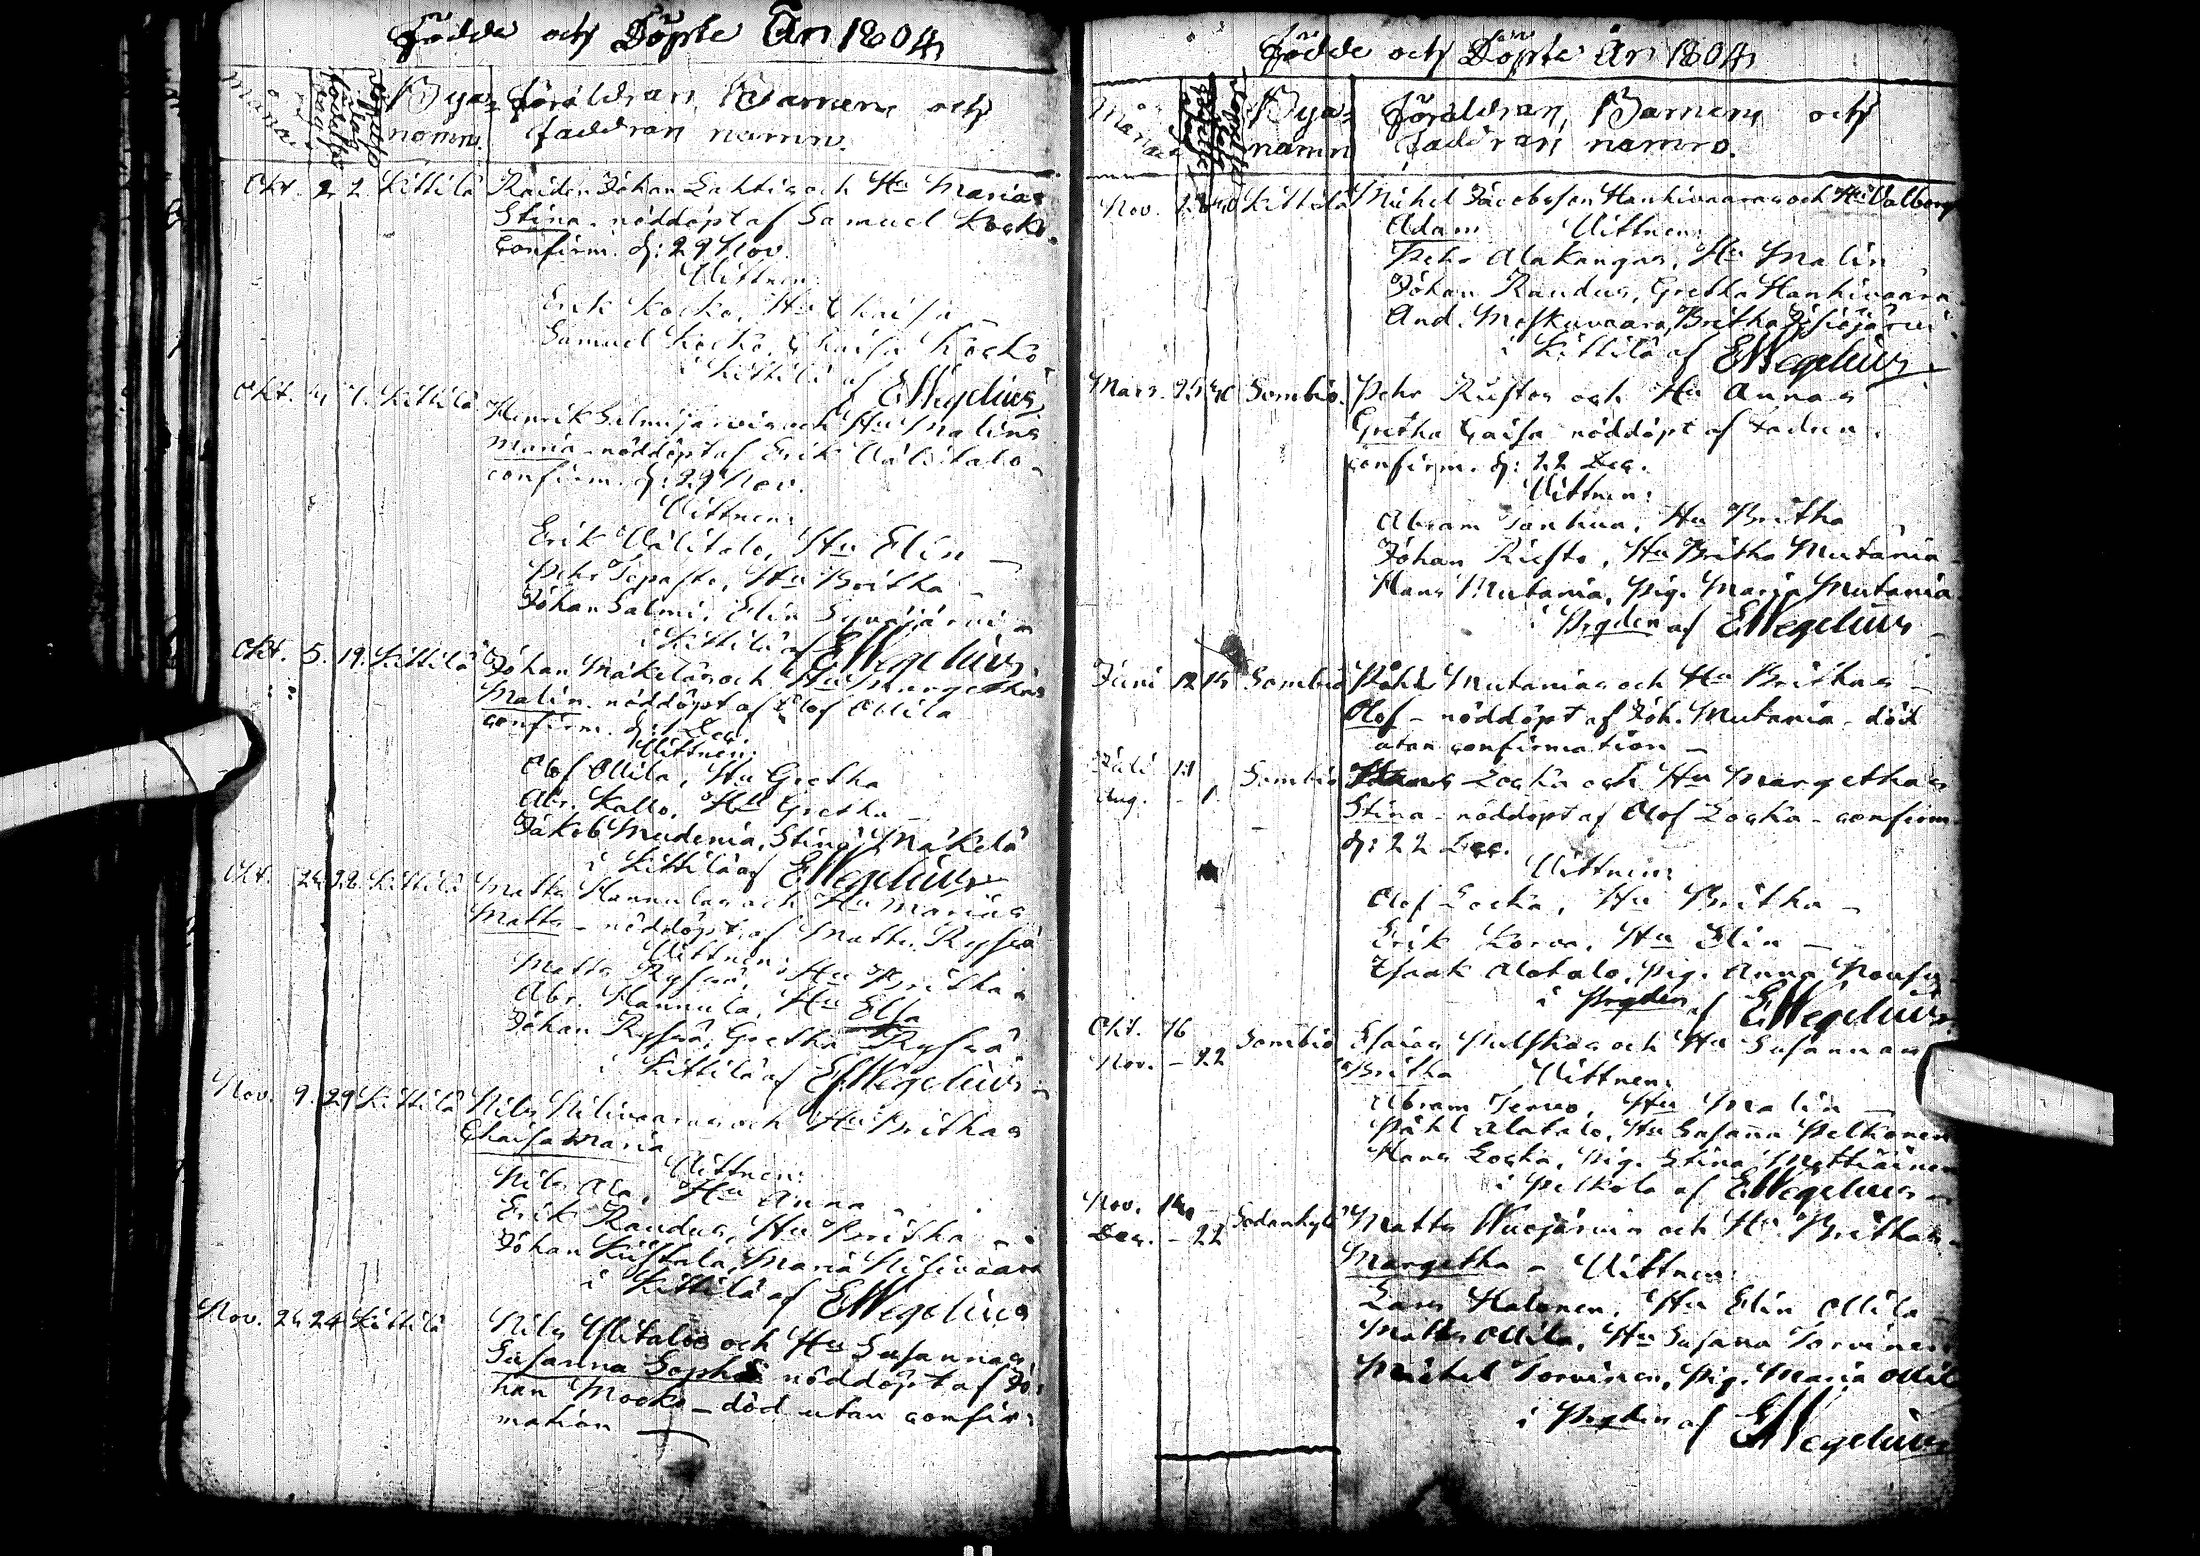 Födde och Döpte År 1804
Månad
Födelse dag
Döpelse dag
Bya=
namn.
Föräldran, Barnens och
Faddran namn.
Okt. 2 2 Kittilä Raiden Johan Lahtis och Hu Marias
Stina - nöddöpt af Samuel Kocko.
Confirm. d: 29 Nov.
Vittnen:
Erik Kocko, Hu Chaisa
Samuel Kocko, Chaisa Kocko
i Kittilä af EWegelius
Okt. 4 7. Kittilä
Henrik Salmijärvis och Hu Malins
Maria - nöddöpt af Erik Välitalo -
confirm. d: 29 Nov.
Vittnen:
Erik Välitalo, Hu Elin -
Pehr Tepasto, Hu Britha -
Johan Salmi, Elin
i Kittilä af EWegelius
Okt. 5. 19. Kittilä Johan Mäkeläs och Hu Margethas
Malin - nöddöpt af Olof Ollila
confirm. d: 1 Dec.
Vittnen:
Olof Ollila, Hu Gretha
Abr. Kallo, Hu Gretha -
Jakob Mudenia, Stina Mäkelä
i Kittilä af EWegelius
Okt. 24 28. Kittilä Matts Hannulas och Hu Marias
Matts - nöddöpt af Matts Rysä
Vittnen:
Matts Rysä, Hu Britha
Abr. Hannula, Hu Elsa
Johan Rysä, Gretha Rysä
i Kittilä af EWegelius -
Nov. 9. 29 Kittilä Nils Nilivaaras och Hu Brithas
Chaisa Maria
Vittnen:
Nils Ala, Hu Anna
Erik Raudus, Hu Britha -
Johan Kustala, Maria Nilivaara
i Kittilä af EWegelius
Nov. 24 24 Kittilä Nils Ylitalos och Hu Susannas
Susanna Sophia nöddöpt af Jo=
han Mocko - död utan confir=
mation
Födde och Döpte År 1804
Månad
Bya=
namn
Föräldran, Barnens och
Faddran namn.
Nov. Kittilä Michel Jacobsson Hanhivaaras och Hu Valborgs
Adam Vittnen:
Pehr Alakangas, Hu Malin
Johan Raudus, Gretha Hanhivaara
And. Moskuvaara, Britha
i Kittilä af EWegelius
Mars. 25 Sombio. Pehr Riestos och Hu Annas
Gretha Caisa nöddöpt af Fadren.
confirm. d: 22 Dec.
Vittnen:
Abram Tanhua, Hu Britha
Johan Riesto, Hu Britha Mutania
Hans Mutania, Pig. Maria Mutania
i Prgden af EWegelius
Juni 12 14 Sombio Påhl Mutanias och Hu Brithas -
Olof - nöddöpt af Joh. Mutania - död
utan confirmation -
Juli 11 Sombio Hans Lockas och Hu Margethas
Aug. - 1. Stina - nöddöpt af Olof Locka - confirm.
d: 22 Dec.
Vittnen:
Olof Locka, Hu Britha -
Erik Korva, Hu Elin -
Isaak Alatalo, Pig. Anna
i Prgden af EWegelius
Okt. 16 Sombio Esaias Pulskas och Hu Susannas
Nov. - 22 Britha Vittnen:
Abram Hu Malin -
Påhl Alatalo, Hu Susanna Pelkonen
Hans Locka, Pig. Stina Mattiainen
i Pelkola af EWegelius -
Nov. 14 Sodankylä Matts Wuojärvis och Hu Brithas -
Dec. - 22 Margetha - Vittnen:
Lars Halonen, Hu Elin Ollila
Matts Ollila, Hu Susana Torvinen
Michel Torvinen, Pig. Maria Ollila
i Prgden af EWegelius